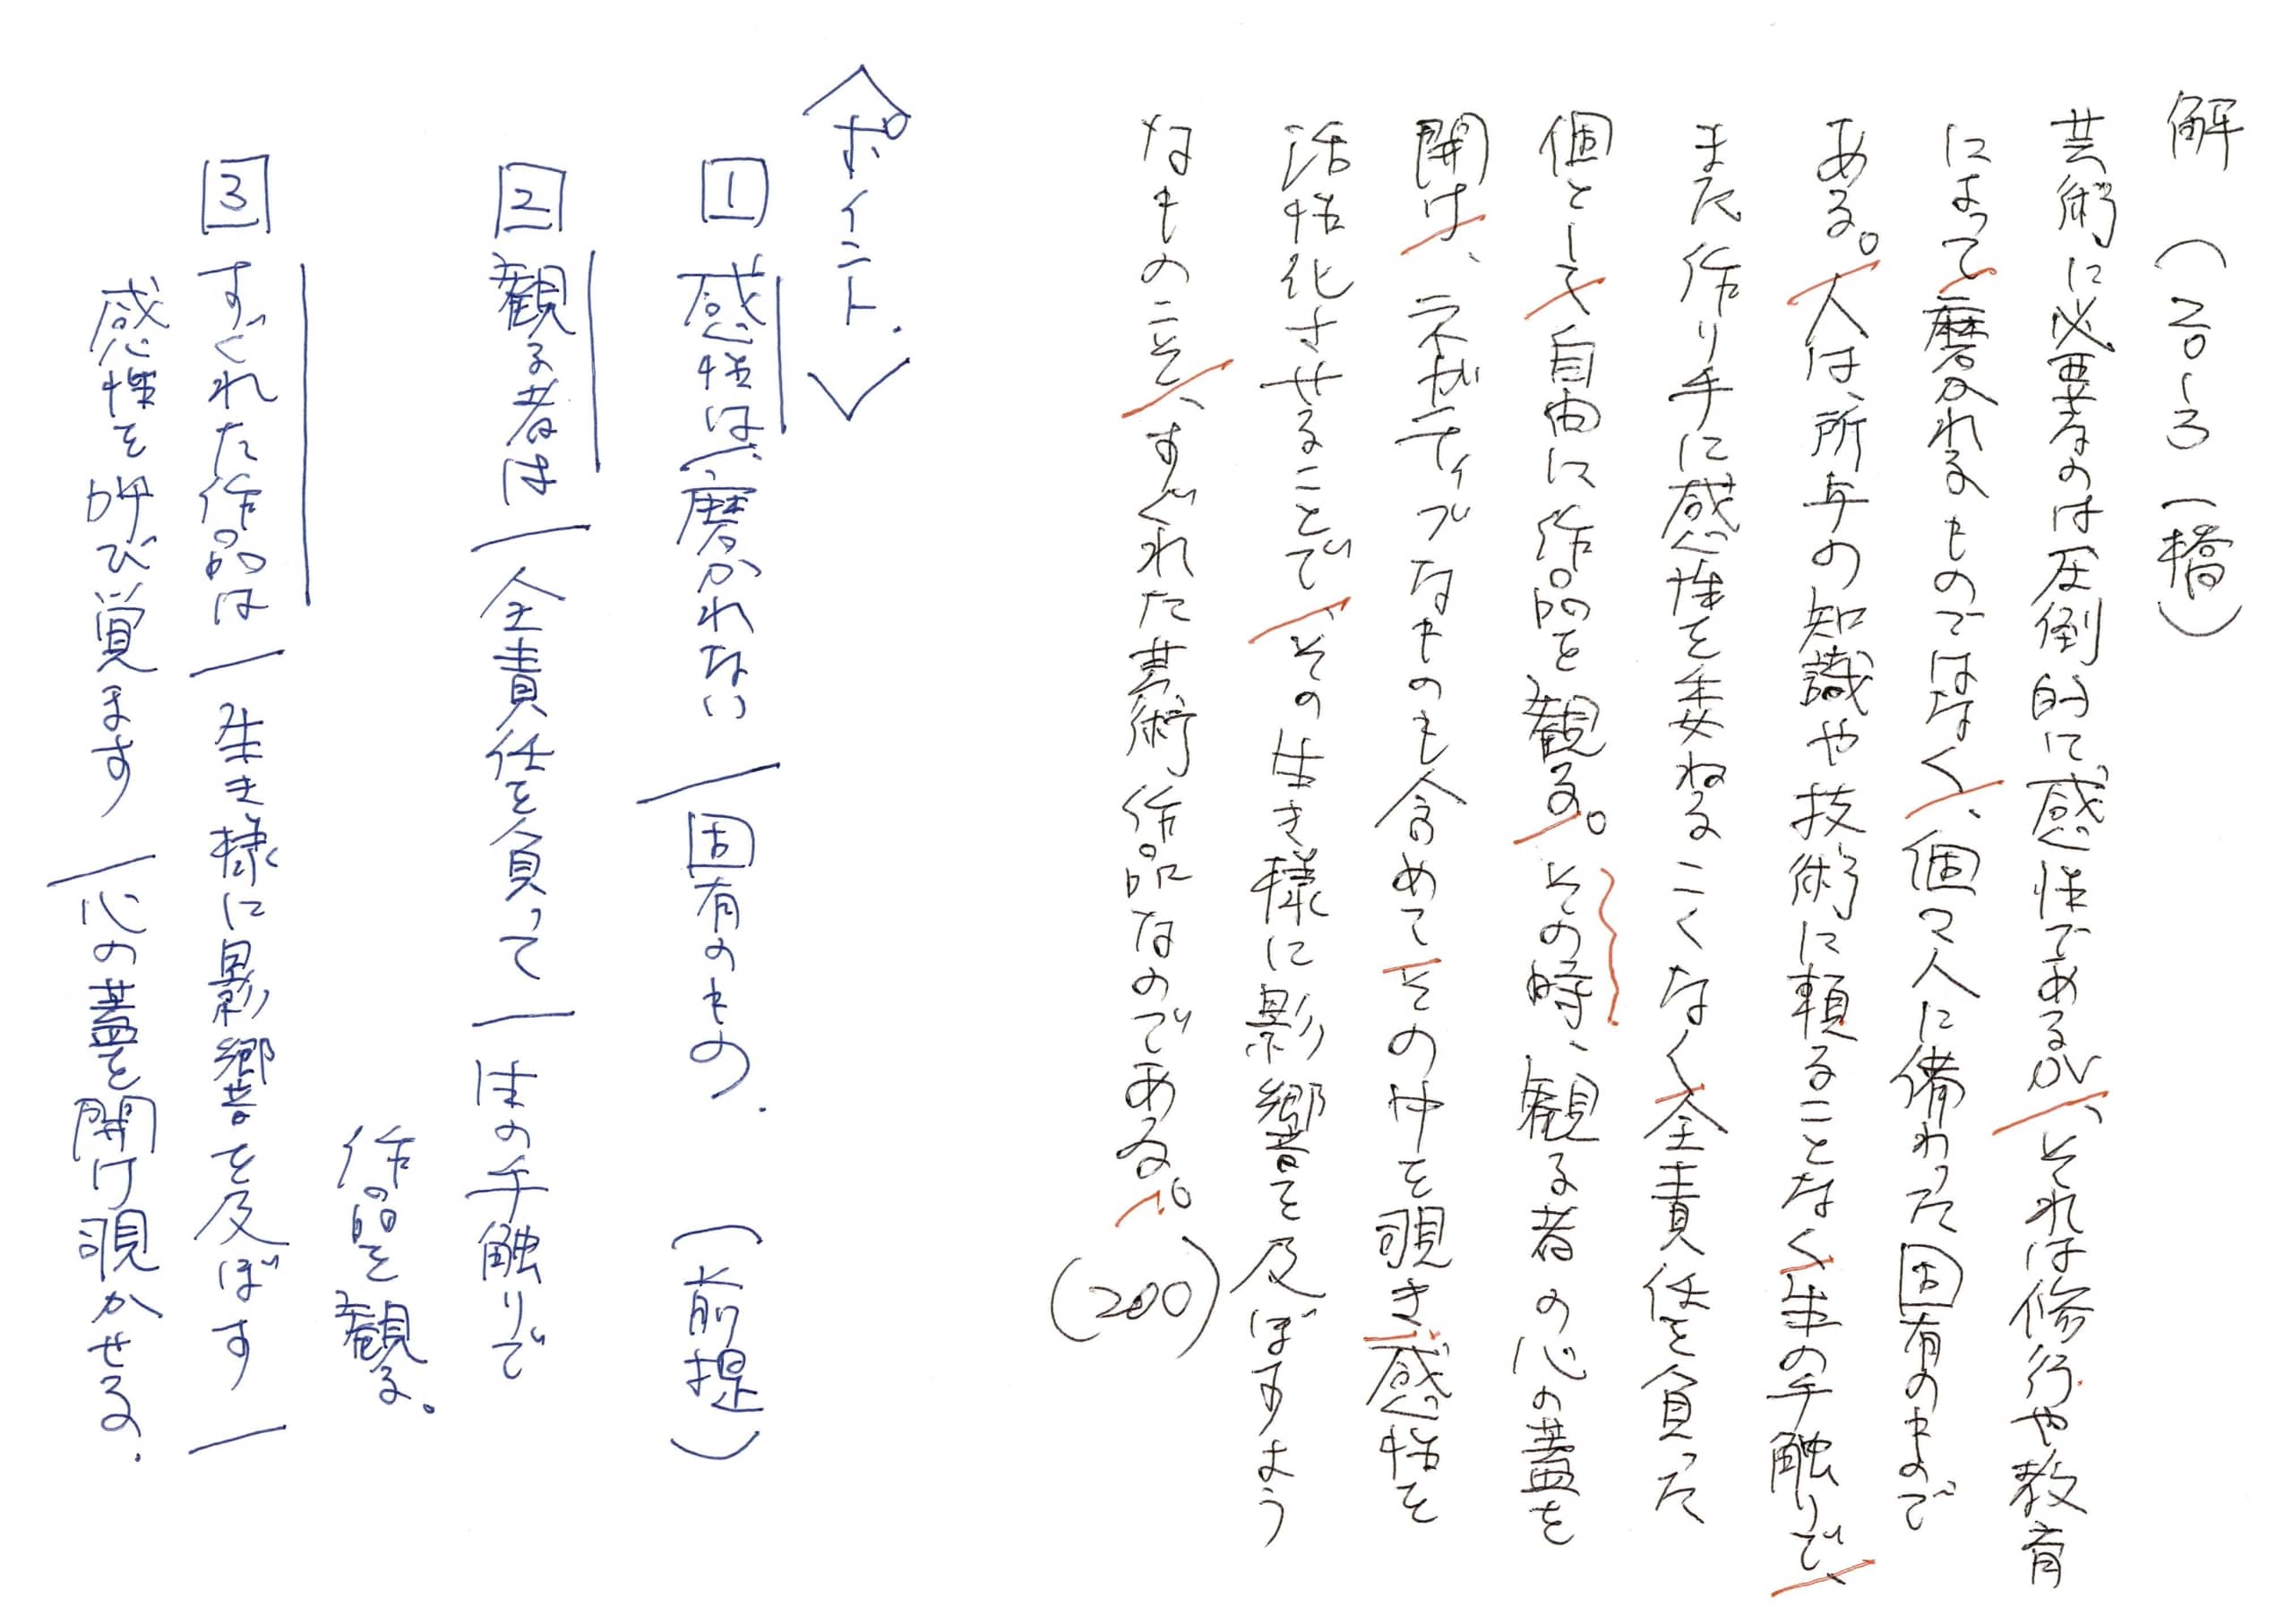 解（20-3 一橋）
芸術に必要なのは圧倒的に感性であるが、それは修行や教育
によって磨かれるものではなく、個々人に備わった固有のもので
ある。人は、所与の知識や技術に頼ることなく生の手触りで、
また作り手に感性を委ねることなく全責任を負った
個として自由に作品を観る。その時、観る者の心の蓋を
開け、ネガティブなものも含めてその中を覗き感性を
活性化させることで、その生き様に影響を及ぼすよう
なものこそ、すぐれた芸術作品なのである。(200)
〈ポイント.〉
1 感性は、磨かれない／固有のもの.（前提）
2 観る者は／全責任を負って／生の手触りで
作品を観る。
3 すぐれた作品は／生き様に影響を及ぼす／
感性を呼び覚ます／心の蓋を開け覗かせる.